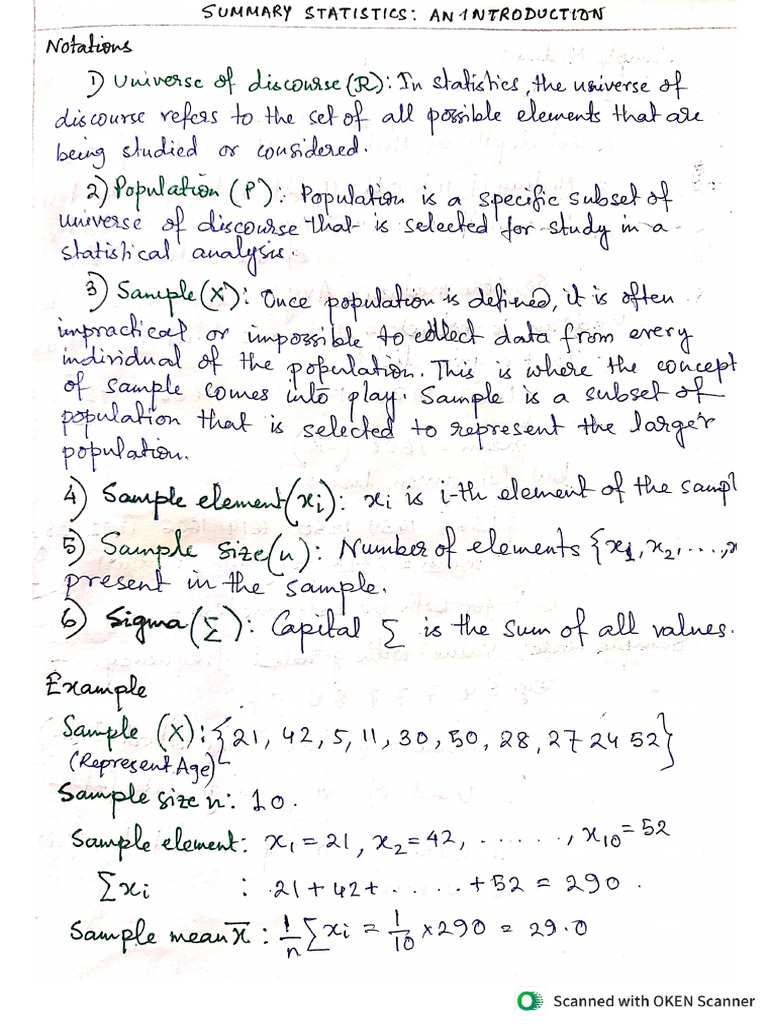 SUMMARY STATISTICS: AN INTRODUCTION
Notations
1) Universe of discourse (R): In statistics, the universe of
discourse refers to the set of all possible elements that are
being studied or considered.
2) Population (P): Population is a specific subset of
universe of discourse that is selected for study in a
statistical analysis.
3) Sample (X): Once population is defined, it is often
impractical or impossible to collect data from every
individual of the population. This is where the concept
of sample comes into play. Sample is a subset of
population that is selected to represent the larger
population.
4) Sample element (xi): xi is i-th element of the sampl
5) Sample size (n): Number of elements {x1, x2, ....., x
present in the sample.
6) Sigma (Σ): Capital Σ is the sum of all values.
Example
Sample (X): {21, 42, 5, 11, 30, 50, 28, 27 24 52}
(Represent Age)
Sample size n: 10.
Sample element: x1 = 21, x2 = 42, ......, x10 = 52
Σxi : 21 + 42 + ..... + 52 = 290.
Sample mean x̄ : 1/n Σxi = 1/10 × 290 = 29.0
Scanned with OKEN Scanner